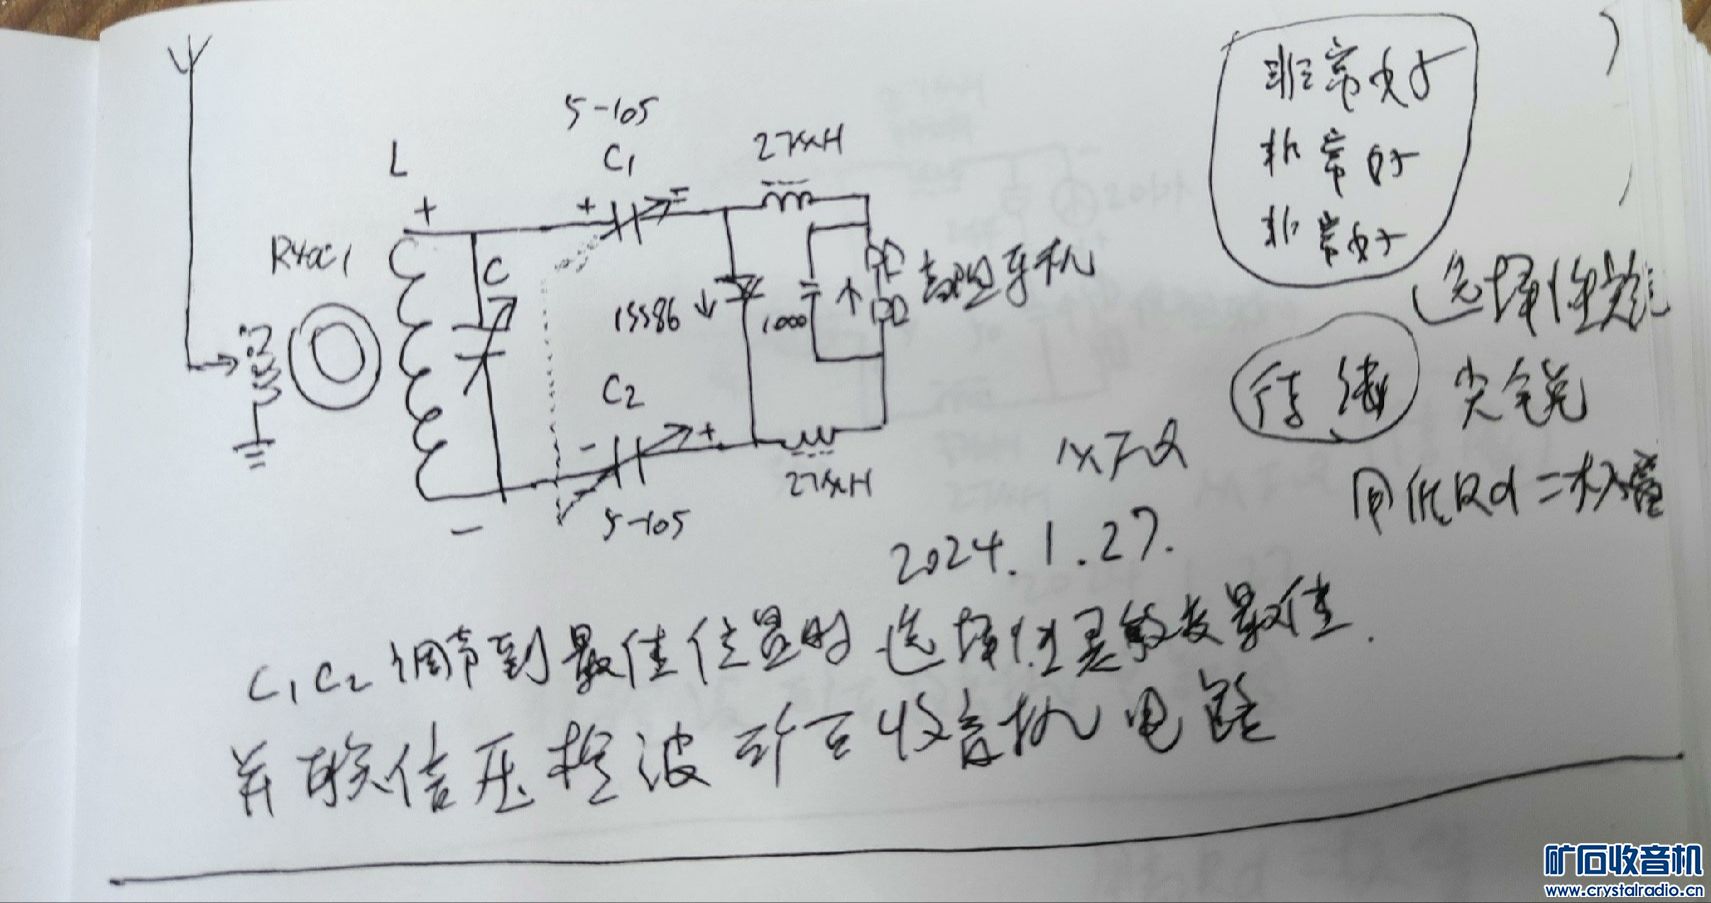 5-105
C1
27mH
L
+
+
R40C1
C
1SS86
1000
高阻耳机
C2
-
+
27mH
5-105
-
非常好
非常好
非常好
选择性能
尖锐
用低Rd二极管
2024.1.27.
C1C2调节到最佳位置时选择性灵敏度最佳.
并联倍压检波矿石收音机电路
矿石收音机
www.crystalradio.cn